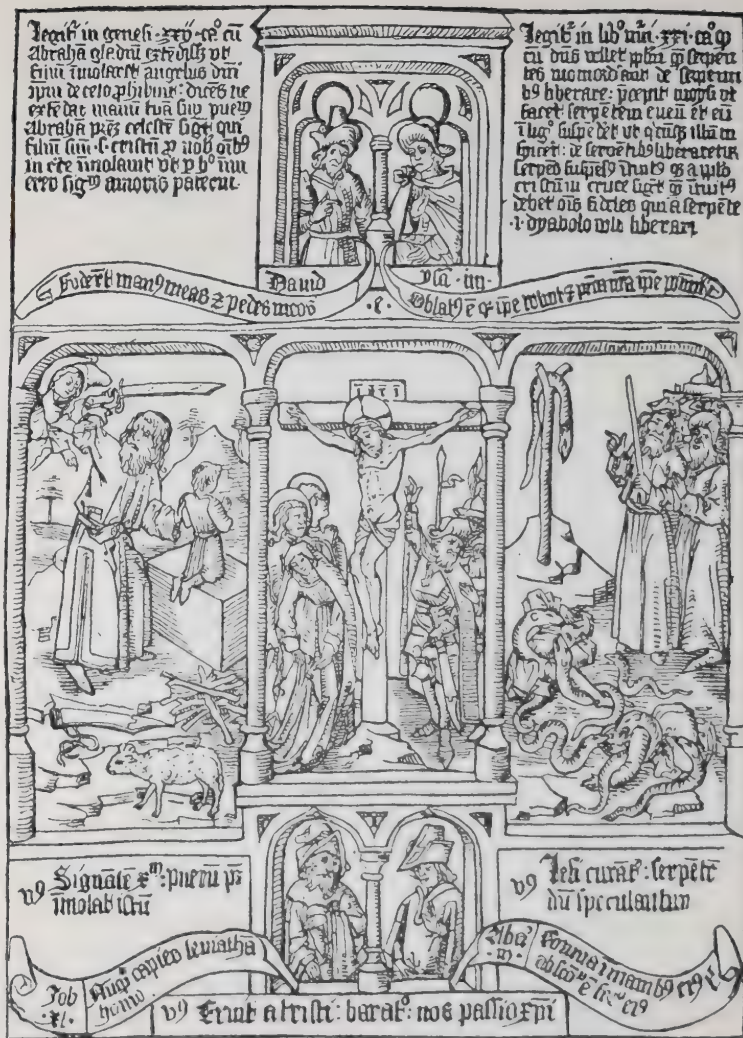 Legit᷑ in genesi · xxij · ca° cū
Abrahā gladiū extēdiss̄ vt
filiū īmolaret angelus dn̄i
ip̄m de celo ꝓhibuit: dicēs ne
extēdas manū tuā suꝑ pueꝝ
Abrahā prēz celestē sigt̄ qui
filiū suū · s · cristū ꝓ nob̄ oīb9
in cͬce īmolauit vt ꝑ h°
sigͫ amoris
Legit᷑ in lib° · xxi · ca° ꝙ
cū dn̄s vellet
tes momordāt de serpenti
b9 liberare: p̄cepit moysi vt
faceͭ serpētem eneū et eū
ī lig° suspēdet vt illū in
spiceͭ: de serpētib9 liberaretur
serpēs suspēs9
cristū in cruce sigt̄
debet oīs fidelis qui a serpēte
· i · dyabolo wlt liberari
Dauid
ysa · liij
Foderūt man9 meas ⁊ pedes meos
· e ·
Oblat9 ē q̄ ip̄e voluit ⁊ p̄cā nr̄a ip̄e
i n r i
v9 Signātē xͫ: puerū pͬ
īmolab istū
v9 lesi curāt᷑: serpētē
dū speculantur
Job
· xl ·
capies leuiathā
hamo
Aba
· iij ·
Cornua ī manib9 ei9
ei9
v9 Eruit a tristi: barat° nos passio xp̄i